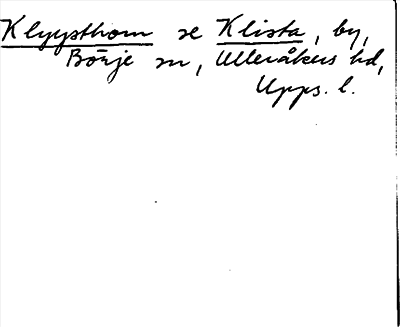 Klyysthom se Klista, by,
Börje sn, Ulleråkers hd,
Upps. l.